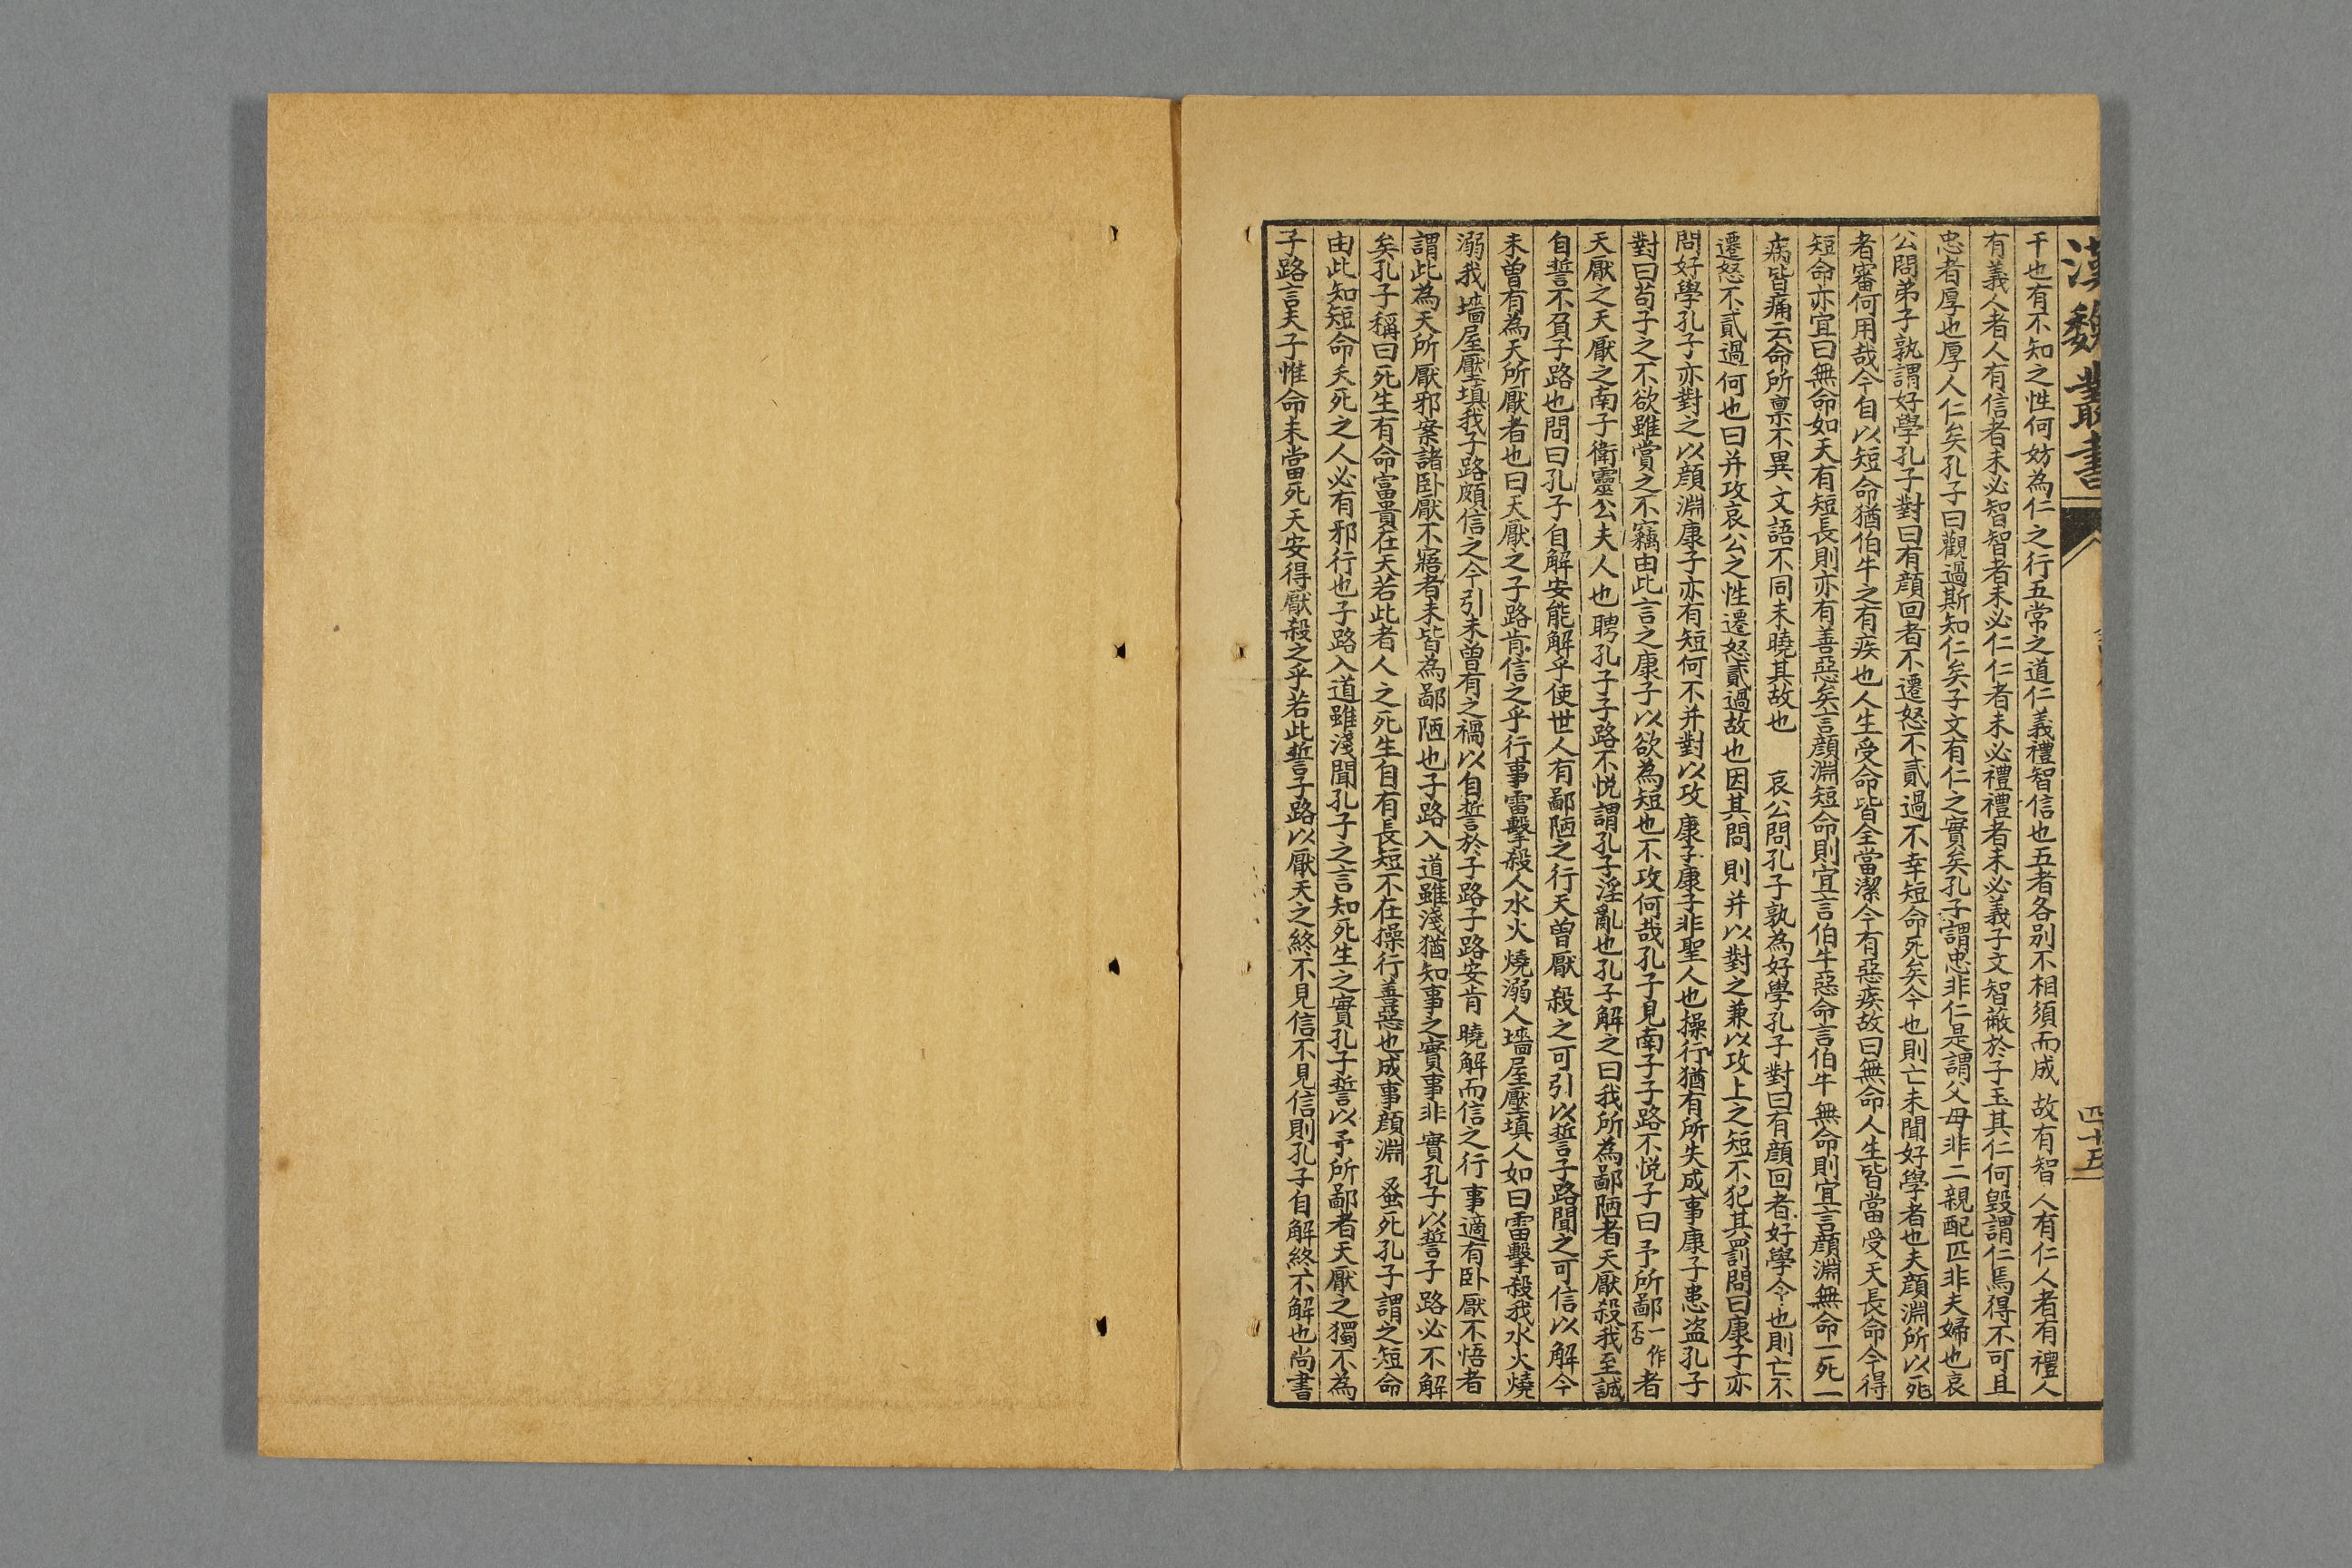 漢魏叢書
四十五
干也有不知之性何妨為仁之行五常之道仁義禮智信也五者各別不相須而成故有智人有仁人者有禮人
有義人者人有信者未必智智者未必仁仁者未必禮禮者未必義子文智蔽於子玉其仁何毀謂仁焉得不可且
忠者厚也厚人仁矣孔子曰觀過斯知仁矣子文有仁之實矣孔子謂忠非仁是謂父母非二親配匹非夫婦也哀
公問弟子孰謂好學孔子對曰有顏回者不遷怒不貳過不幸短命死矣今也則亡未聞好學者也夫顏淵所以死
者審何用哉今自以短命猶伯牛之有疾也人生受命皆全當潔今有惡疾故曰無命人生皆當受天長命今得
短命亦宜曰無命如天有短長則亦有善惡矣言顏淵短命則宜言伯牛惡命言伯牛無命則宜言顏淵無命一死一
病皆痛云命所禀不異文語不同未曉其故也　哀公問孔子孰為好學孔子對曰有顏回者好學今也則亡不
遷怒不貳過何也曰并攻哀公之性遷怒貳過故也因其問則并以對之兼以攻上之短不犯其罰問曰康子亦
問好學孔子亦對之以顏淵康子亦有短何不并對以攻康子康子非聖人也操行猶有所失成事康子患盜孔子
對曰苟子之不欲雖賞之不竊由此言之康子以欲為短也不攻何哉孔子見南子子路不悅子曰予所鄙一作否者
天厭之天厭之南子衛靈公夫人也聘孔子子路不悅謂孔子淫亂也孔子解之曰我所為鄙陋者天厭殺我至誠
自誓不負子路也問曰孔子自解安能解乎使世人有鄙陋之行天曾厭殺之可引以誓子路聞之可信以解今
未曾有為天所厭者也曰天厭之子路肯信之乎行事雷擊殺人水火燒溺人墻屋壓填人如曰雷擊殺我水火燒
溺我墻屋壓填我子路頗信之今引未曾有之禍以自誓於子路子路安肯曉解而信之行事適有臥厭不悟者
謂此為天所厭邪案諸臥厭不寤者未皆為鄙陋也子路入道雖淺猶知事之實事非實孔子以誓子路必不解
矣孔子稱曰死生有命富貴在天若此者人之死生自有長短不在操行善惡也成事顏淵蚤死孔子謂之短命
由此知短命夭死之人必有邪行也子路入道雖淺聞孔子之言知死生之實孔子誓以予所鄙者天厭之獨不為
子路言夫子惟命未當死天安得厭殺之乎若此誓子路以厭天之終不見信不見信則孔子自解終不解也尚書